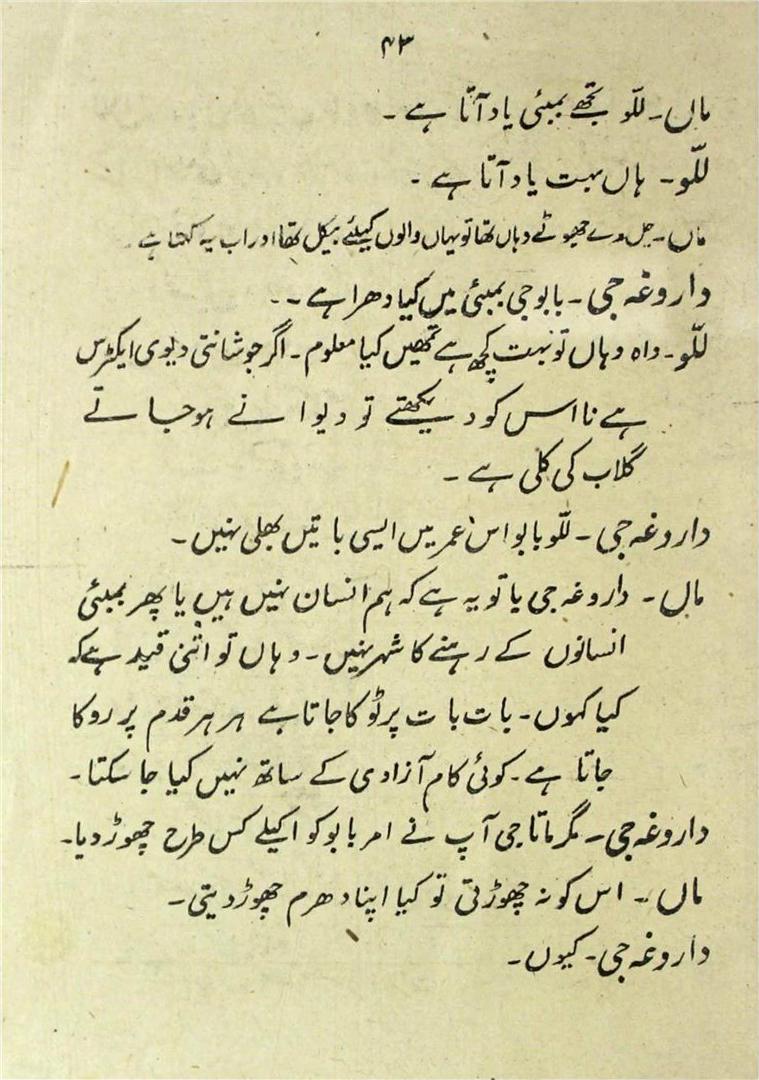 ۴۳
ماں۔ للّو تجھے بمبئی یاد آتا ہے ۔
للّو۔ ہاں بہت یاد آتا ہے ۔
ماں۔ چل رے جھوٹے وہاں تھا تو یہاں والوں کیلئے بیکل تھا اور اب یہ کہتا ہے ۔
داروغہ جی ۔ بابو جی بمبئی میں کیا دھرا ہے ۔۔
للّو۔ واہ وہاں تو بہت کچھ ہے تمھیں کیا معلوم ۔ اگر جو شانتی دیوی ایکٹرس
ہے نا اس کو دیکھتے تو دیوانے ہو جاتے
گلاب کی کلی ہے ۔
داروغہ جی ۔ للّو بابو اس عمر میں ایسی باتیں بھلی نہیں ۔
ماں ۔ داروغہ جی یا تو یہ ہے کہ ہم انسان نہیں ہیں یا پھر بمبئی
انسانوں کے رہنے کا شہر نہیں ۔ وہاں تو اتنی قید ہے کہ
کیا کہوں ۔ بات بات پر ٹوکا جاتا ہے ہر ہر قدم پر روکا
جاتا ہے ۔ کوئی کام آزادی کے ساتھ نہیں کیا جا سکتا ۔
داروغہ جی ۔ مگر ماتا جی آپ نے امر بابو کو اکیلے کس طرح چھوڑ دیا ۔
ماں ۔ اس کو نہ چھوڑتی تو کیا اپنا دھرم چھوڑ دیتی ۔
داروغہ جی ۔ کیوں ۔